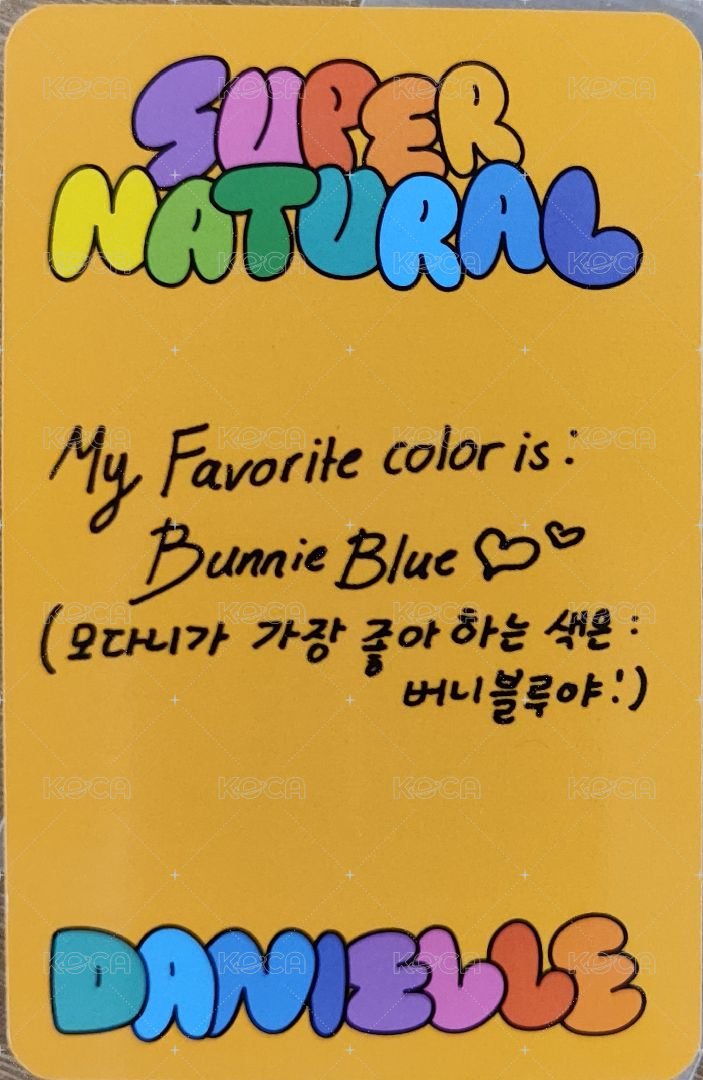 SUPER
NATURAL
My Favorite color is:
Bunnie Blue ♡♡
(모다니가 가장 좋아하는 색은:
버니블루야!)
DANIELLE
KOCA